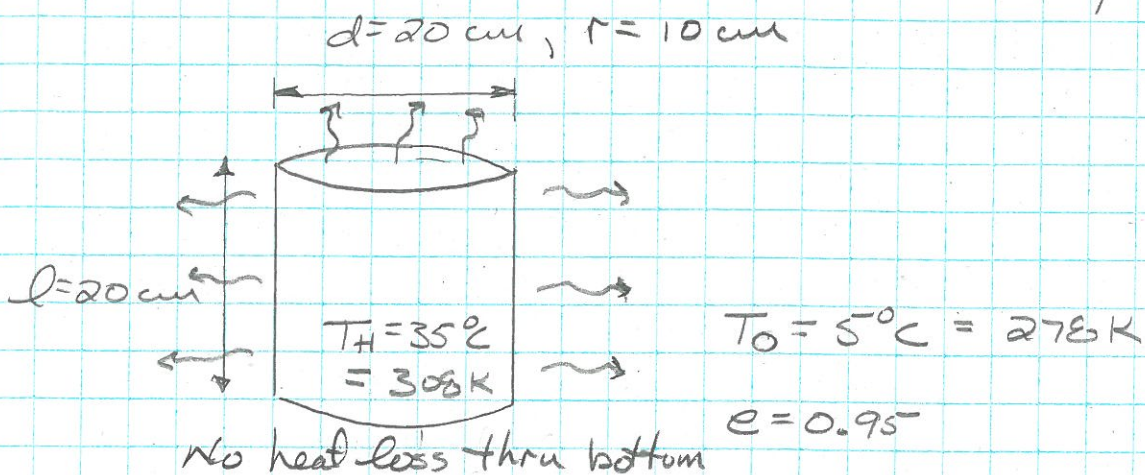 d=20 cm, r=10 cm
l=20cm
T_H = 35°C
= 308K
T_0 = 5°C = 278K
e=0.95
No heat loss thru bottom